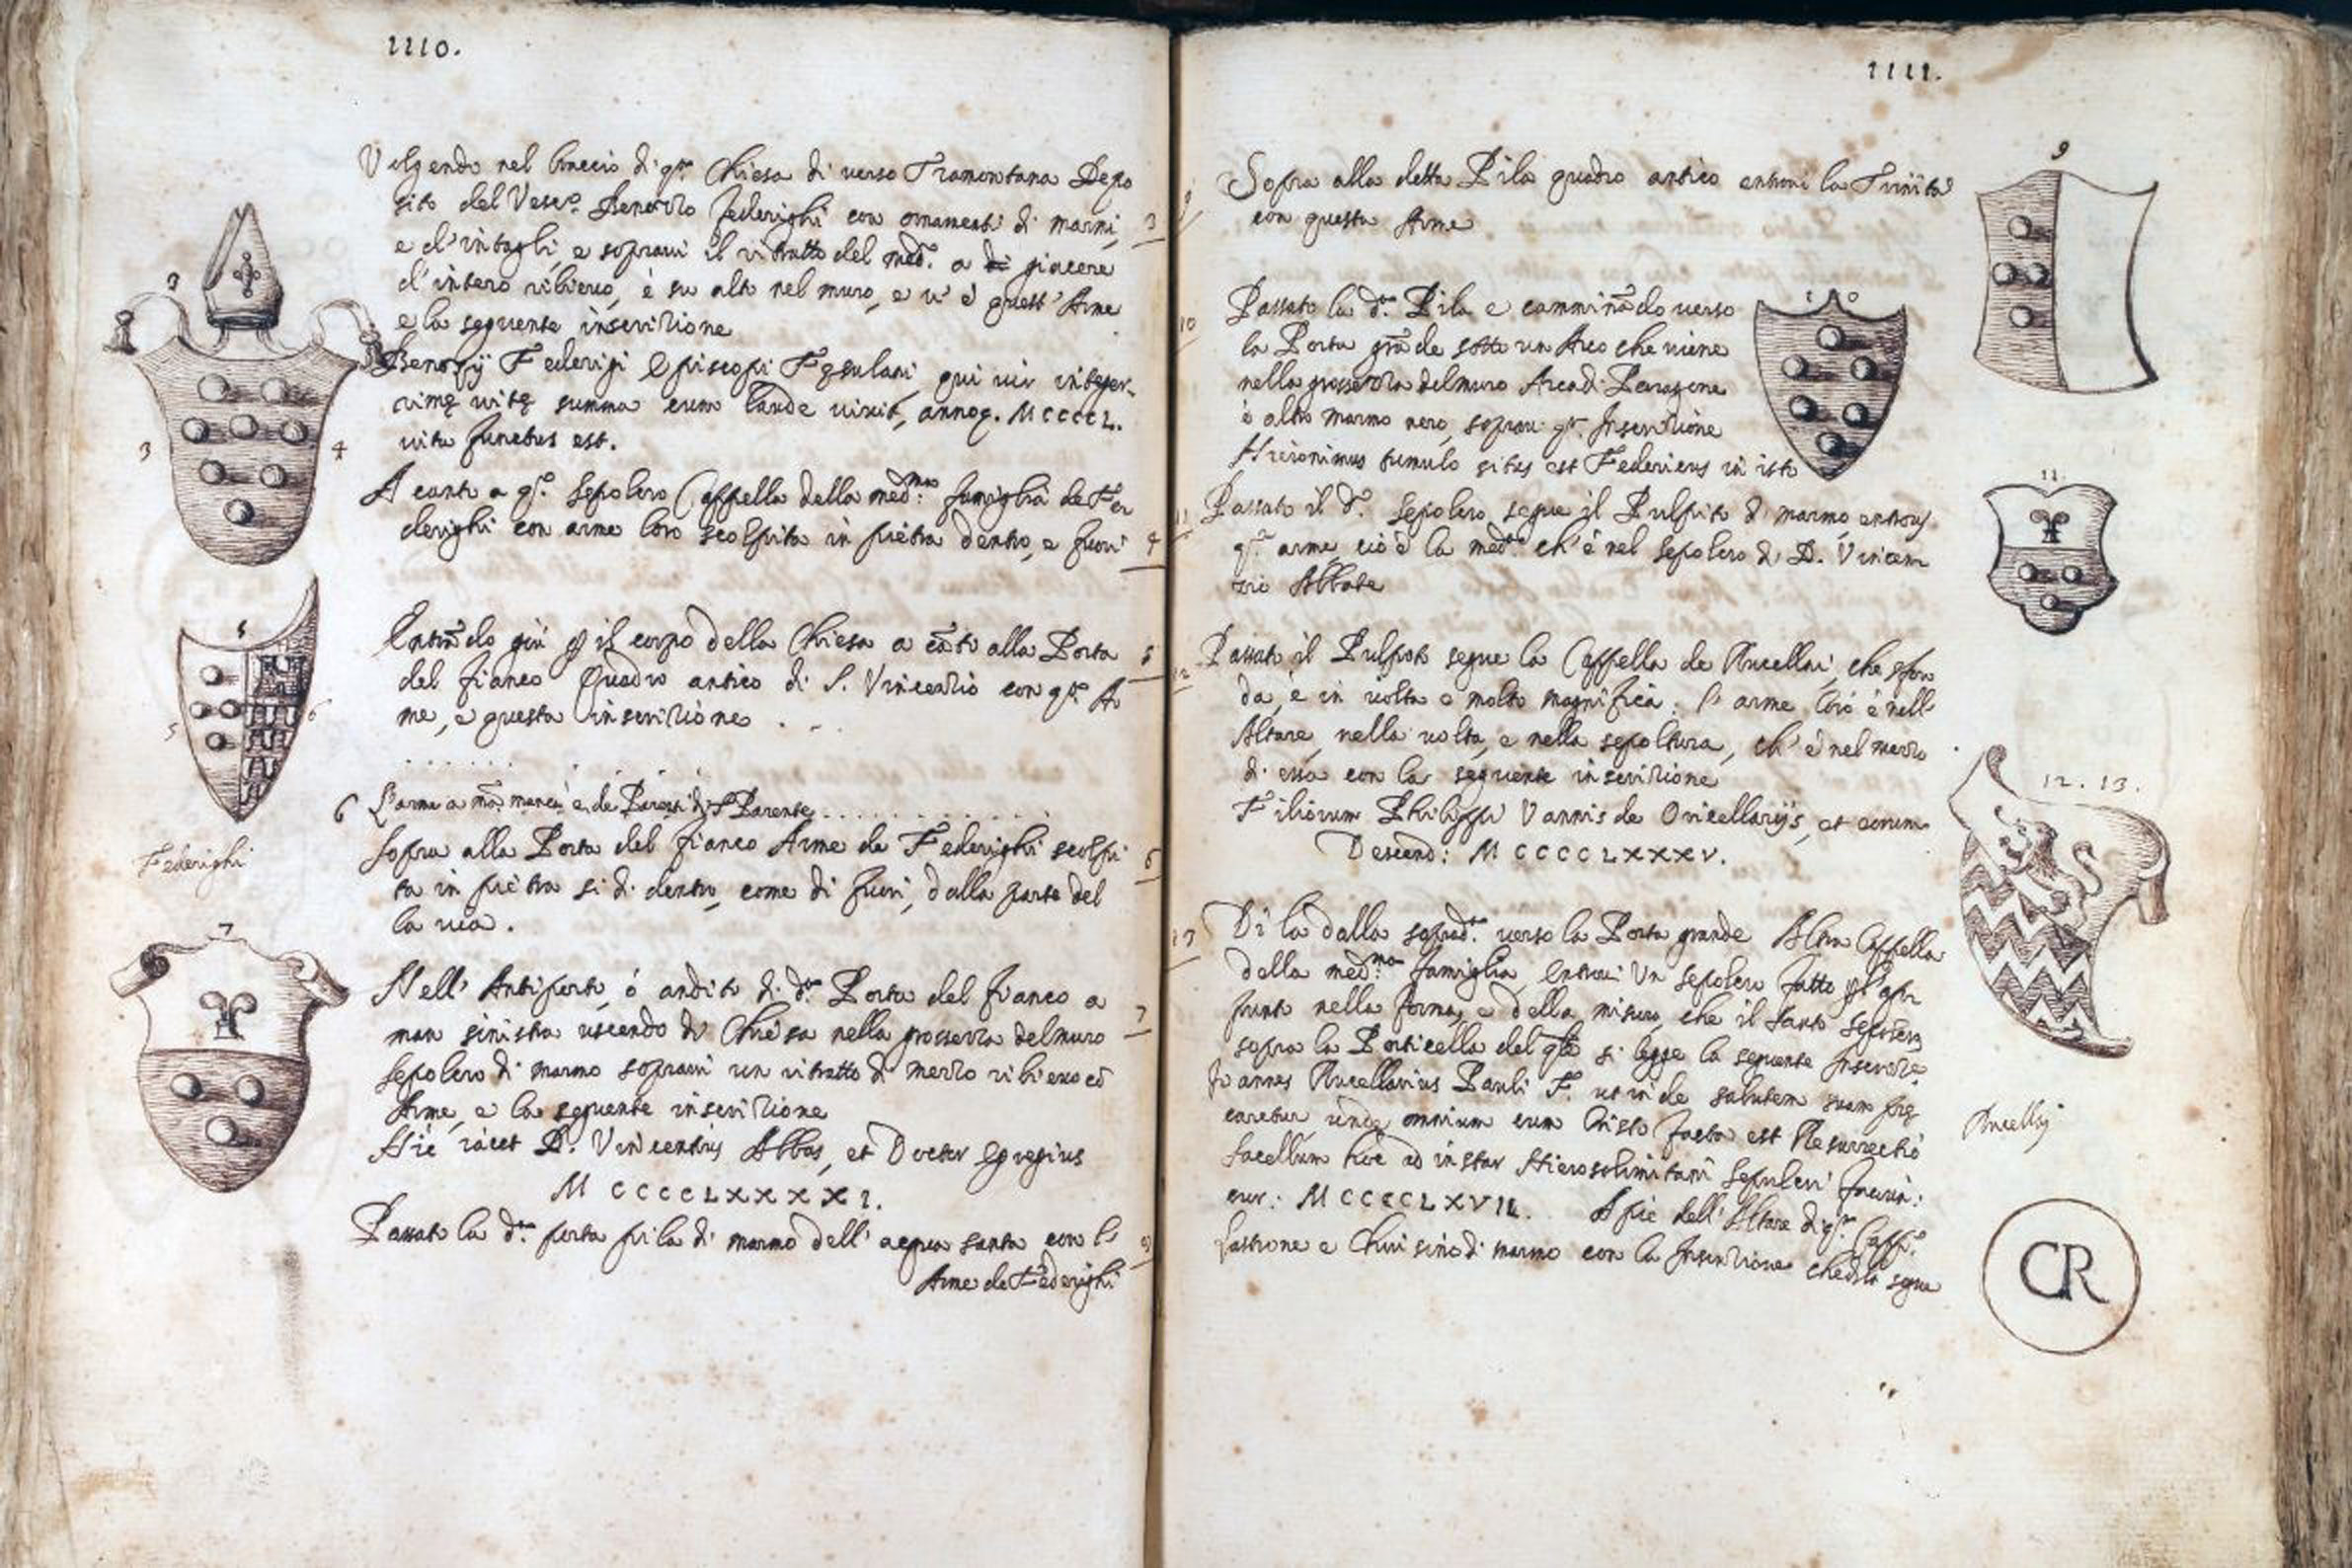 1110.
Volgendo nel braccio di q.ta Chiesa di verso Tramontana Depo
sito del Vesc.o Benozzo Federighi con ornamenti di marmi,
e d'intagli, e sopravi il ritratto del med.o a di giacere
d'intero rilievo, è su alto nel muro, e v'è quest'Arme
e la seguente inscrizione
Benozij Federigi Episcopi Fęsulani, qui vir integer-
rimę vitę summa cum laude vixit, annoq. MCCCCL.
vita functus est.
Acanto a q.to sepolcro Cappella della med.ma famiglia de Fe
derighi con arme loro scolpita in pietra dentro, e fuori
Entrãdo giù p il corpo della Chiesa a cãto alla Porta
del fianco Quadro antico di S. Vincenzio con q.ta Ar
me, e questa inscrizione . . .
. . . . . .
6 L'arme a mã manca è de Parenti di S. Parente . . . . . . . .
Sopra alla Porta del fianco Arme de Federighi scolpi
ta in pietra si di dentro, come di fuori, dalla parte del
la via.
Nell'Antiporto, ò andito di d.ta Porta del fianco a
man sinistra uscendo di Chiesa nella grossezza del muro
sepolcro di marmo sopravi un ritratto di mezzo rilievo ed
Arme, e la seguente inscrizione
Hic iacet D. Vincentius Abbas, et Doctor egregius
MCCCCLXXXXI.
Passato la d.ta porta pila di marmo dell'acqua santa con l'
Arme de Federighi
3
4
5
6
7
3
3
4
5
5
6
Federighi
7
1111.
Sopra alla detta Pila quadro antico entrovi la Trinità
con questa Arme
Passato la d.ta Pila e camminãdo verso
la Porta grãde sotto un Arco che viene
nella grossezza del muro Arca di Paragone
ò altro marmo nero, sopravi q.ta Inscrizione
Hieronimus tumulo situs est Federicus in isto
Passato il d.o sepolcro segue il Pulpito di marmo entrovi
q.ta arme cioè la med.ma ch'è nel sepolcro di D. Vincen
zio Abbate
Passato il Pulpito segue la Cappella de Rucellai, che sfon
da, è in volta e molto magnifica. l'arme loro è nell'
Altare, nella volta, e nella sepoltura, ch'è nel mezzo
di essa con la seguente inscrizione
Filiorum Philippi Vannis de Oricellarijs, et eorum
Descend: MCCCCLXXXV.
Di là dalla soprad.ta verso la Porta grande Altra Cappella
della med.ma famiglia, entrovi un sepolcro fatto p l'ap
punto nella forma, e della misura, che il Santo Sepolcro
sopra la Porticella del q.le si legge la seguente Inscrizione
Ioannes Rucellarius Pauli F. ut inde salutem suam pre
caretur, unde omnium cum Christo facta est Resurrectio
sacellum hoc ad instar Hierosolimitani Sepulcri faciun:
cur: MCCCCLXVII. A piè dell'Altare di q.ta Capp.a
lastrone e Chiusino di marmo con la Inscrizione che dietro segue
9
10
11
12
13
9
10
11
12. 13.
Rucellaj
CR